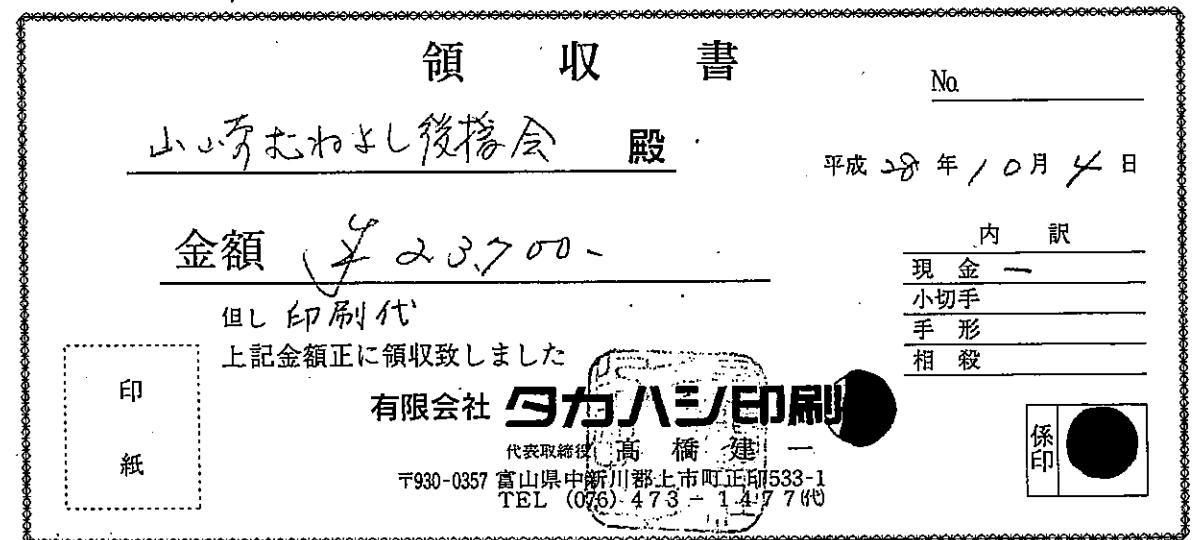 領収書
No.
山崎むねよし後援会 殿
平成 28 年 10 月 4 日
金額 ¥23,700-
内訳
現金 ー
小切手
手形
相殺
但し 印刷代
上記金額正に領収致しました
印紙
有限会社 タカハシ印刷
代表取締役 高橋建一
〒930-0357 富山県中新川郡上市町正印533-1
TEL (076) 473-1477(代)
係印